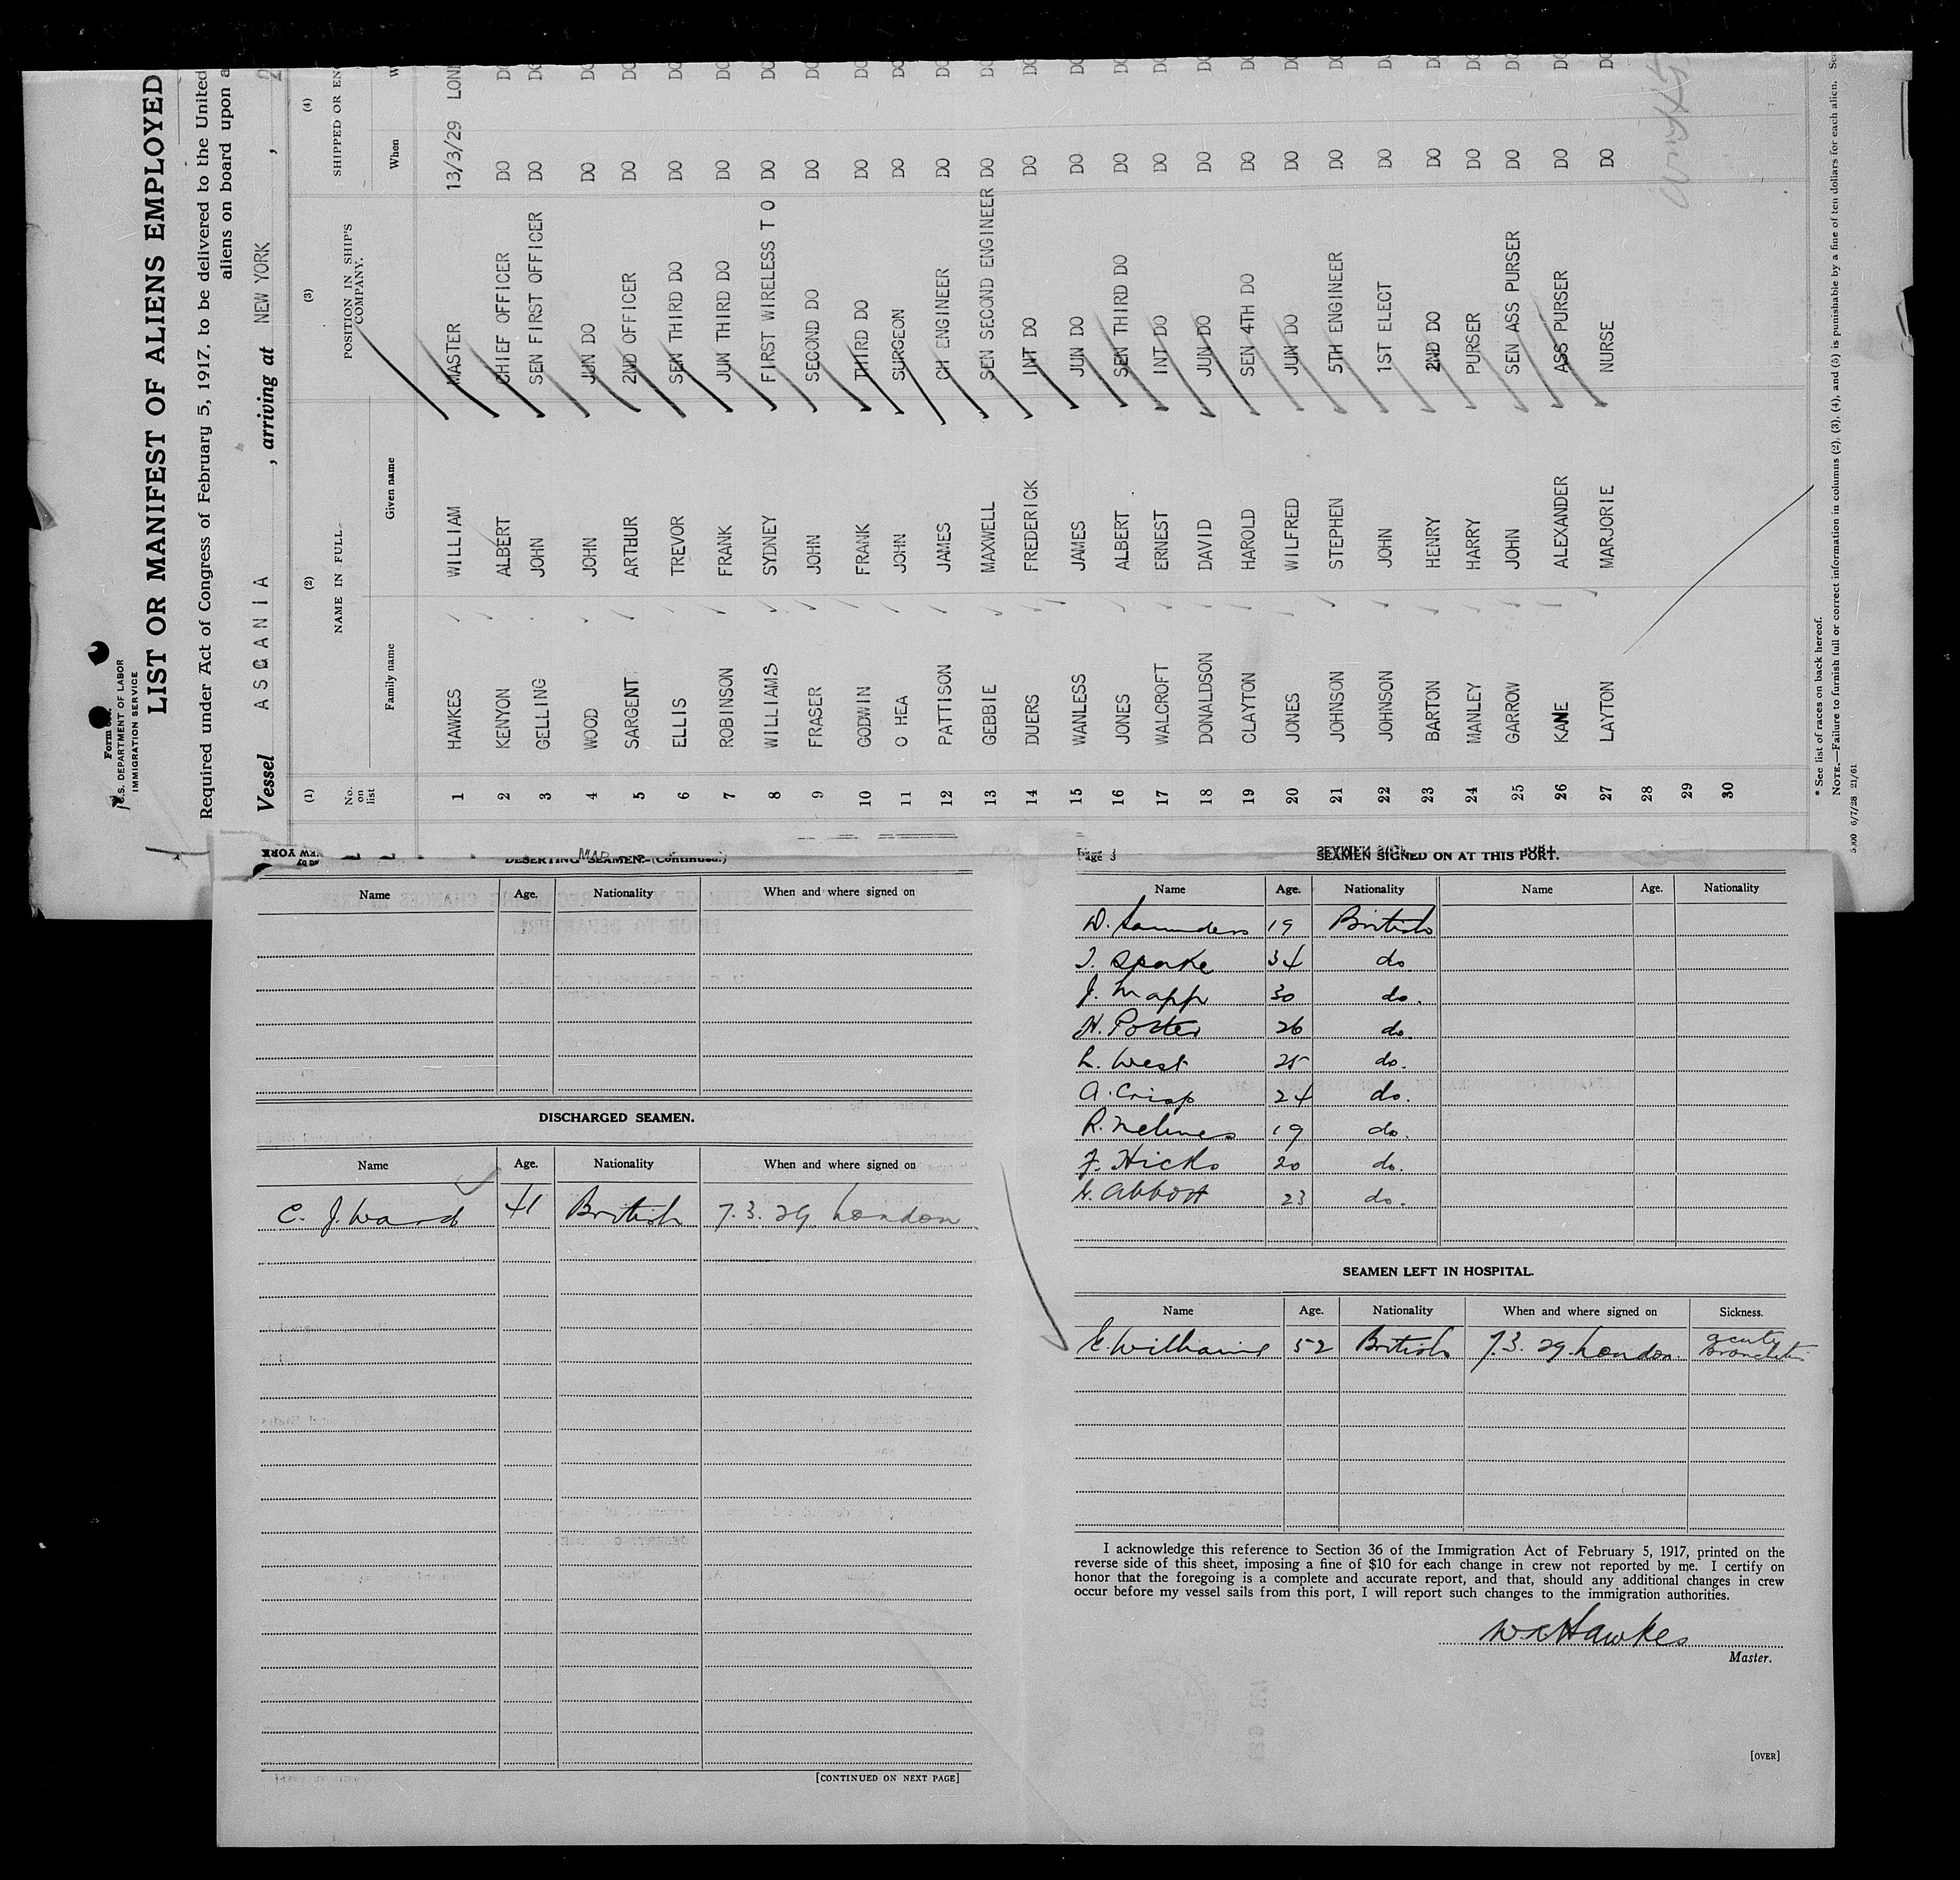 Form 680.
U.S. DEPARTMENT OF LABOR
IMMIGRATION SERVICE
LIST OR MANIFEST OF ALIENS EMPLOYED
Required under Act of Congress of February 5, 1917, to be delivered to the United
aliens on board upon a
Vessel ASCANIA, arriving at NEW YORK,
(1) (2) (3) (4)
No. on list NAME IN FULL POSITION IN SHIP'S COMPANY. SHIPPED OR EN
Family name Given name When
1 HAWKES WILLIAM MASTER 13/3/29 LOND
2 KENYON ALBERT CHIEF OFFICER DO DO
3 GELLING JOHN SEN FIRST OFFICER DO DO
4 WOOD JOHN JUN DO DO DO
5 SARGENT ARTHUR 2ND OFFICER DO DO
6 ELLIS TREVOR SEN THIRD DO DO DO
7 ROBINSON FRANK JUN THIRD DO DO DO
8 WILLIAMS SYDNEY FIRST WIRELESS T O DO DO
9 FRASER JOHN SECOND DO DO DO
10 GODWIN FRANK THIRD DO DO DO
11 O HEA JOHN SURGEON DO DO
12 PATTISON JAMES CH ENGINEER DO DO
13 GEBBIE MAXWELL SEN SECOND ENGINEER DO DO
14 DUERS FREDERICK INT DO DO DO
15 WANLESS JAMES JUN DO DO DO
16 JONES ALBERT SEN THIRD DO DO DO
17 WALCROFT ERNEST INT DO DO DO
18 DONALDSON DAVID JUN DO DO DO
19 CLAYTON HAROLD SEN 4TH DO DO DO
20 JONES WILFRED JUN DO DO DO
21 JOHNSON STEPHEN 5TH ENGINEER DO DO
22 JOHNSON JOHN 1ST ELECT DO DO
23 BARTON HENRY 2ND DO DO DO
24 MANLEY HARRY PURSER DO DO
25 GARROW JOHN SEN ASS PURSER DO DO
26 KANE ALEXANDER ASS PURSER DO DO
27 LAYTON MARJORIE NURSE DO DO
28
29
30
* See list of races on back hereof.
NOTE.—Failure to furnish full or correct information in columns (2), (3), (4), and (6) is punishable by a fine of ten dollars for each alien.
6/7/28 21/61
DESERTING SEAMEN—(Continued.)
Name Age. Nationality When and where signed on
DISCHARGED SEAMEN.
Name Age. Nationality When and where signed on
C. J. Ward 41 British 7.3.29 London
[CONTINUED ON NEXT PAGE]
Page 3
SEAMEN SIGNED ON AT THIS PORT.
Name Age. Nationality Name Age. Nationality
W. Saunders 19 British
34 do.
J. Mapp 30 do.
H. Potter 26 do.
L. West 25 do.
A. Crisp 24 do.
19 do.
F. Hicks 20 do.
Abbott 23 do.
SEAMEN LEFT IN HOSPITAL.
Name Age. Nationality When and where signed on Sickness.
E. Williams 52 British 7.3.29. London. acute bronchitis
I acknowledge this reference to Section 36 of the Immigration Act of February 5, 1917, printed on the
reverse side of this sheet, imposing a fine of $10 for each change in crew not reported by me. I certify on
honor that the foregoing is a complete and accurate report, and that, should any additional changes in crew
occur before my vessel sails from this port, I will report such changes to the immigration authorities.
Hawkes
Master.
[OVER]